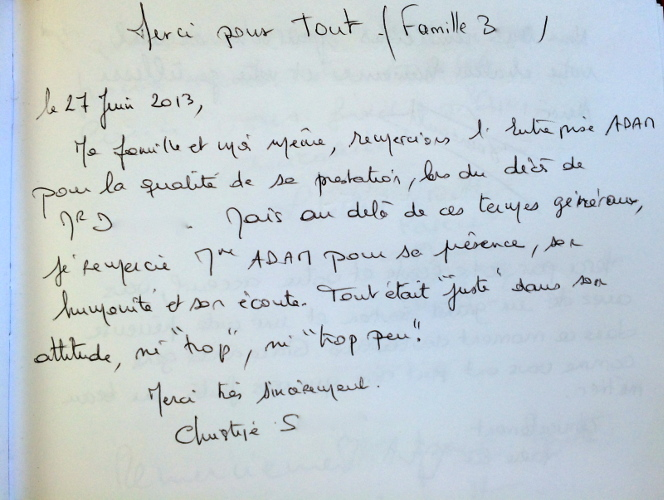 Merci pour Tout. (Famille B )
le 27 Juin 2013,
Ma famille et moi même, remercions l'Entreprise ADAM
pour la qualité de sa prestation, lors du décès de
Mr D . Mais au delà de ces termes généraux,
je remercie Mme ADAM pour sa présence, son
humanité et son écoute. Tout était "juste" dans son
attitude, ni "trop", ni "trop peu".
Merci très sincèrement.
Christine S